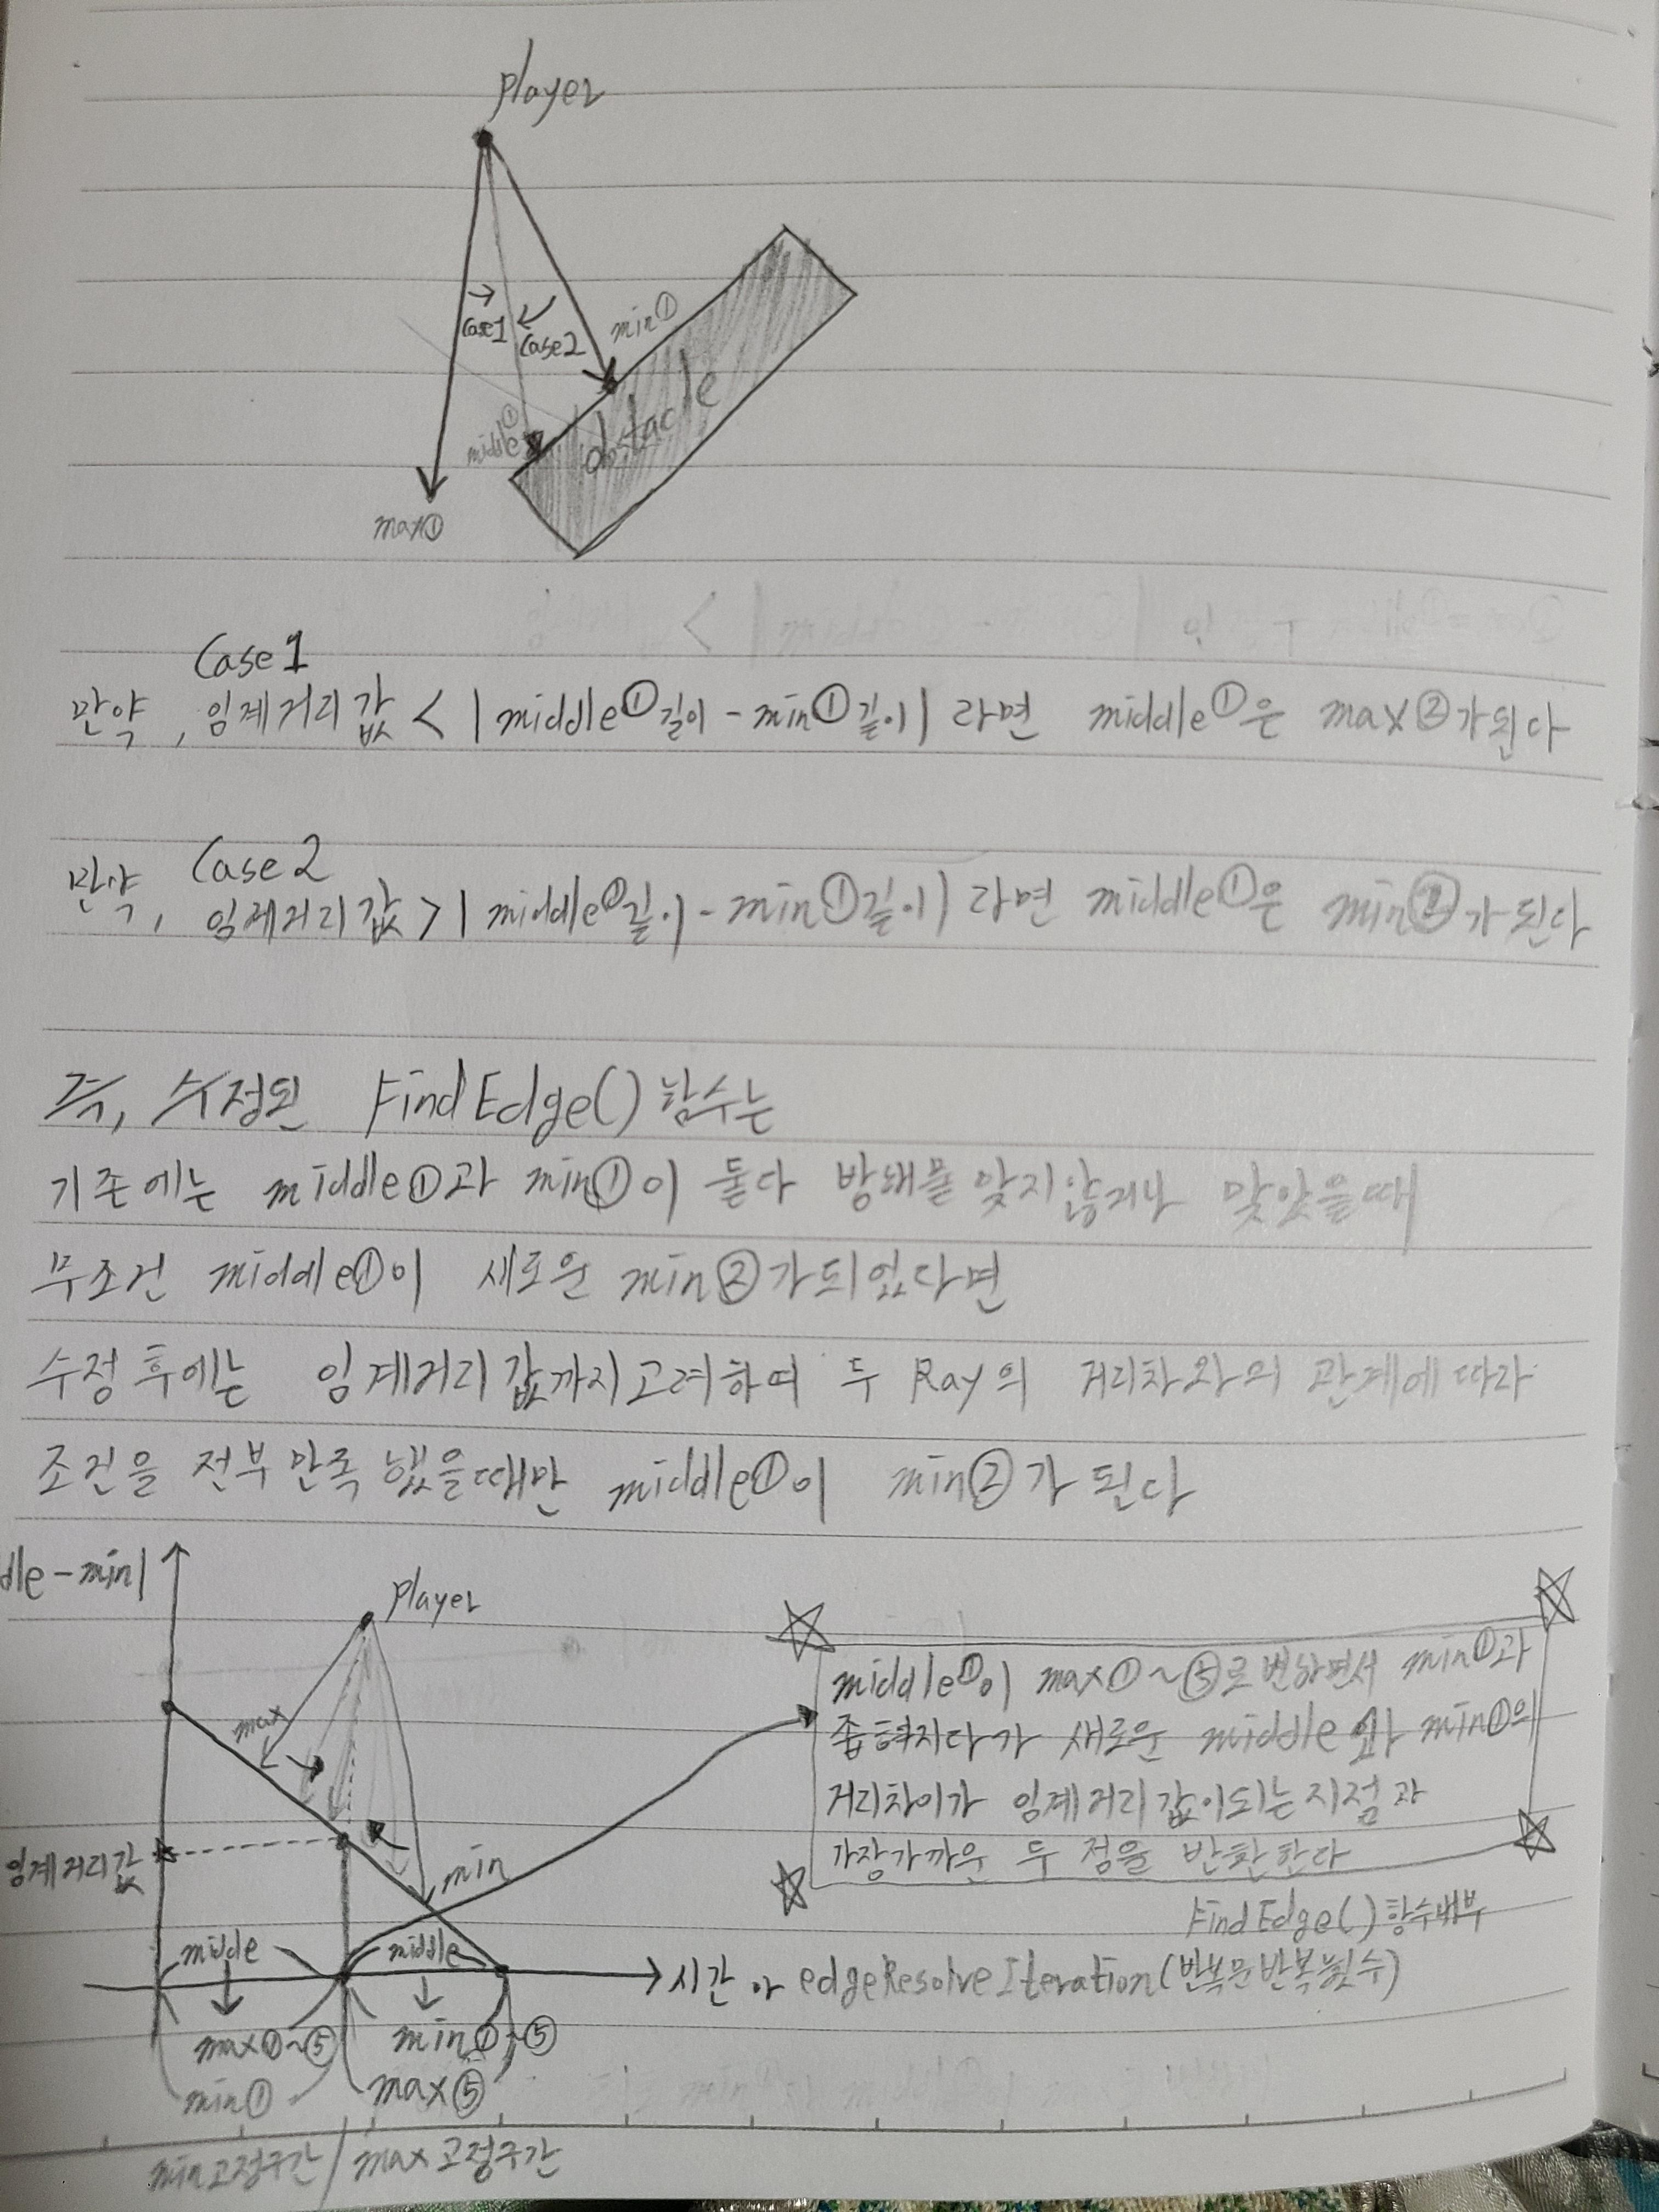 player
case1
case2
min①
middle①
obstacle
max①
Case 1
만약, 임계거리값 < | middle①길이 - min①길이| 라면 middle①은 max②가된다
Case 2
만약, 임계거리값 > | middle①길이 - min①길이| 라면 middle①은 min②가 된다
즉, 수정된 FindEdge() 함수는
기존에는 middle①과 min①이 둘다 방해물 맞지않거나 맞았을때
무조건 middle①이 새로운 min②가되었다면
수정 후에는 임계거리값까지고려하여 두 Ray의 거리차와의 관계에따라
조건을 전부만족 했을때만 middle①이 min②가 된다
dle - min|
player
max
min
임계거리값
middle①이 max①~⑤로변하면서 min①과
좁혀지다가 새로운 middle 와 min①의
거리차이가 임계거리값이되는지점과
가장가까운 두 점을 반환한다
FindEdge() 함수내부
midle
middle
시간 or edgeResolveIteration(반복문반복횟수)
max①~⑤
min①~⑤
min①
max⑤
min고정구간 / max고정구간